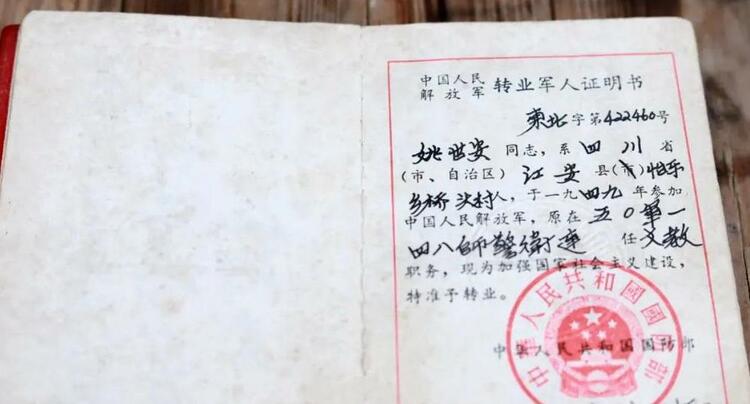 中国人民
解放军 转业军人证明书
東北字第422460号
姚世安同志，系四川省
（市、自治区）江安县（市）怡乐
乡桥头村人，于一九四九年参加
中国人民解放军，原在五〇軍一
四八師警衛連 任文教
职务，现为加强国家社会主义建设，
特准予转业。
中华人民共和国国防部
中華人民共和國國防部